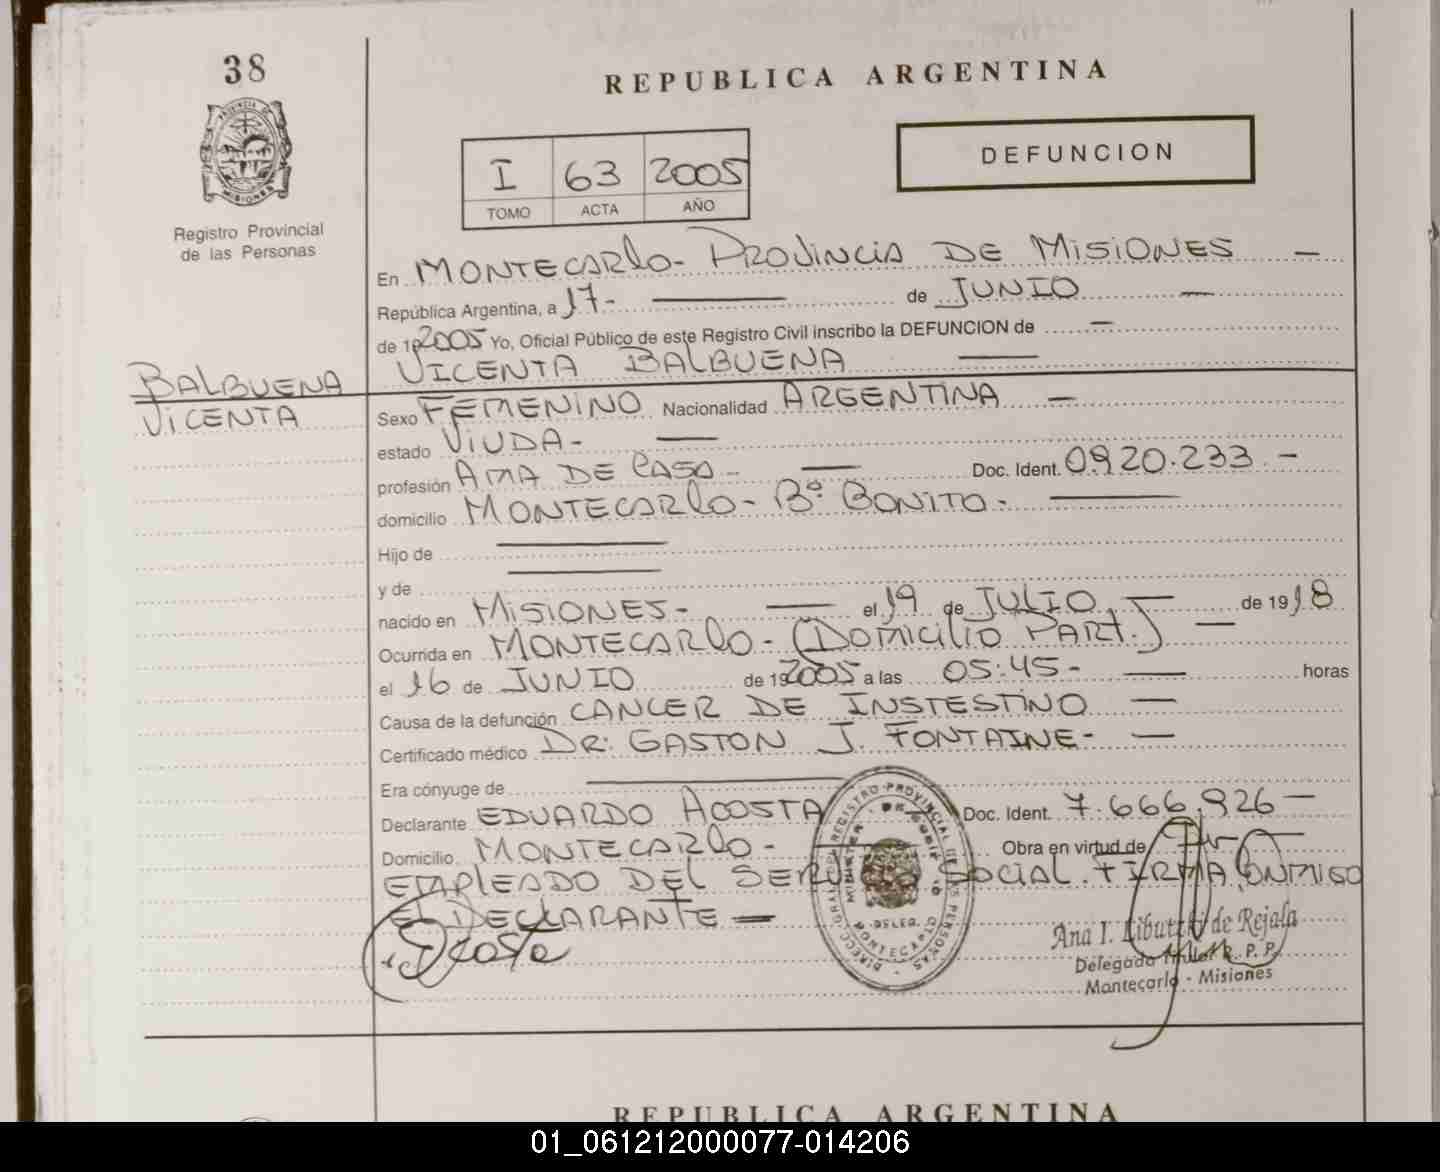 38
PROVINCIA DE
MISIONES
Registro Provincial
de las Personas
REPUBLICA ARGENTINA
I 63 2005
TOMO ACTA AÑO
DEFUNCION
En MONTECARLO - PROVINCIA DE MISIONES —
República Argentina, a 17 - — de JUNIO —
de 192005 Yo, Oficial Público de este Registro Civil inscribo la DEFUNCION de —
VICENTA BALBUENA —
BALBUENA
VICENTA
Sexo FEMENINO Nacionalidad ARGENTINA —
estado VIUDA - —
profesión AMA DE CASA - — Doc. Ident. 0.920.233 -
domicilio MONTECARLO - Bº BONITO - —
Hijo de —
y de —
nacido en MISIONES - — el 19 de JULIO, — de 1918
Ocurrida en MONTECARLO - (DOMICILIO PART.) —
el 16 de JUNIO de 192005 a las 05:45 - — horas
Causa de la defunción CANCER DE INSTESTINO —
Certificado médico DR: GASTON J. FONTAINE - —
Era cónyuge de —
Declarante EDUARDO ACOSTA Doc. Ident. 7.666.926 —
Domicilio MONTECARLO - — Obra en virtud de
EMPLEADO DEL SERVICIO SOCIAL. FIRMA CONMIGO
EL DECLARANTE —
Acosta
DIRECC. GRAL. REGISTRO PROVINCIAL DE LAS PERSONAS
DELEG.
MONTECARLO
Ana I. de Rejala
Delegada Titular R. P. P.
Montecarlo - Misiones
REPUBLICA ARGENTINA
01_061212000077-014206